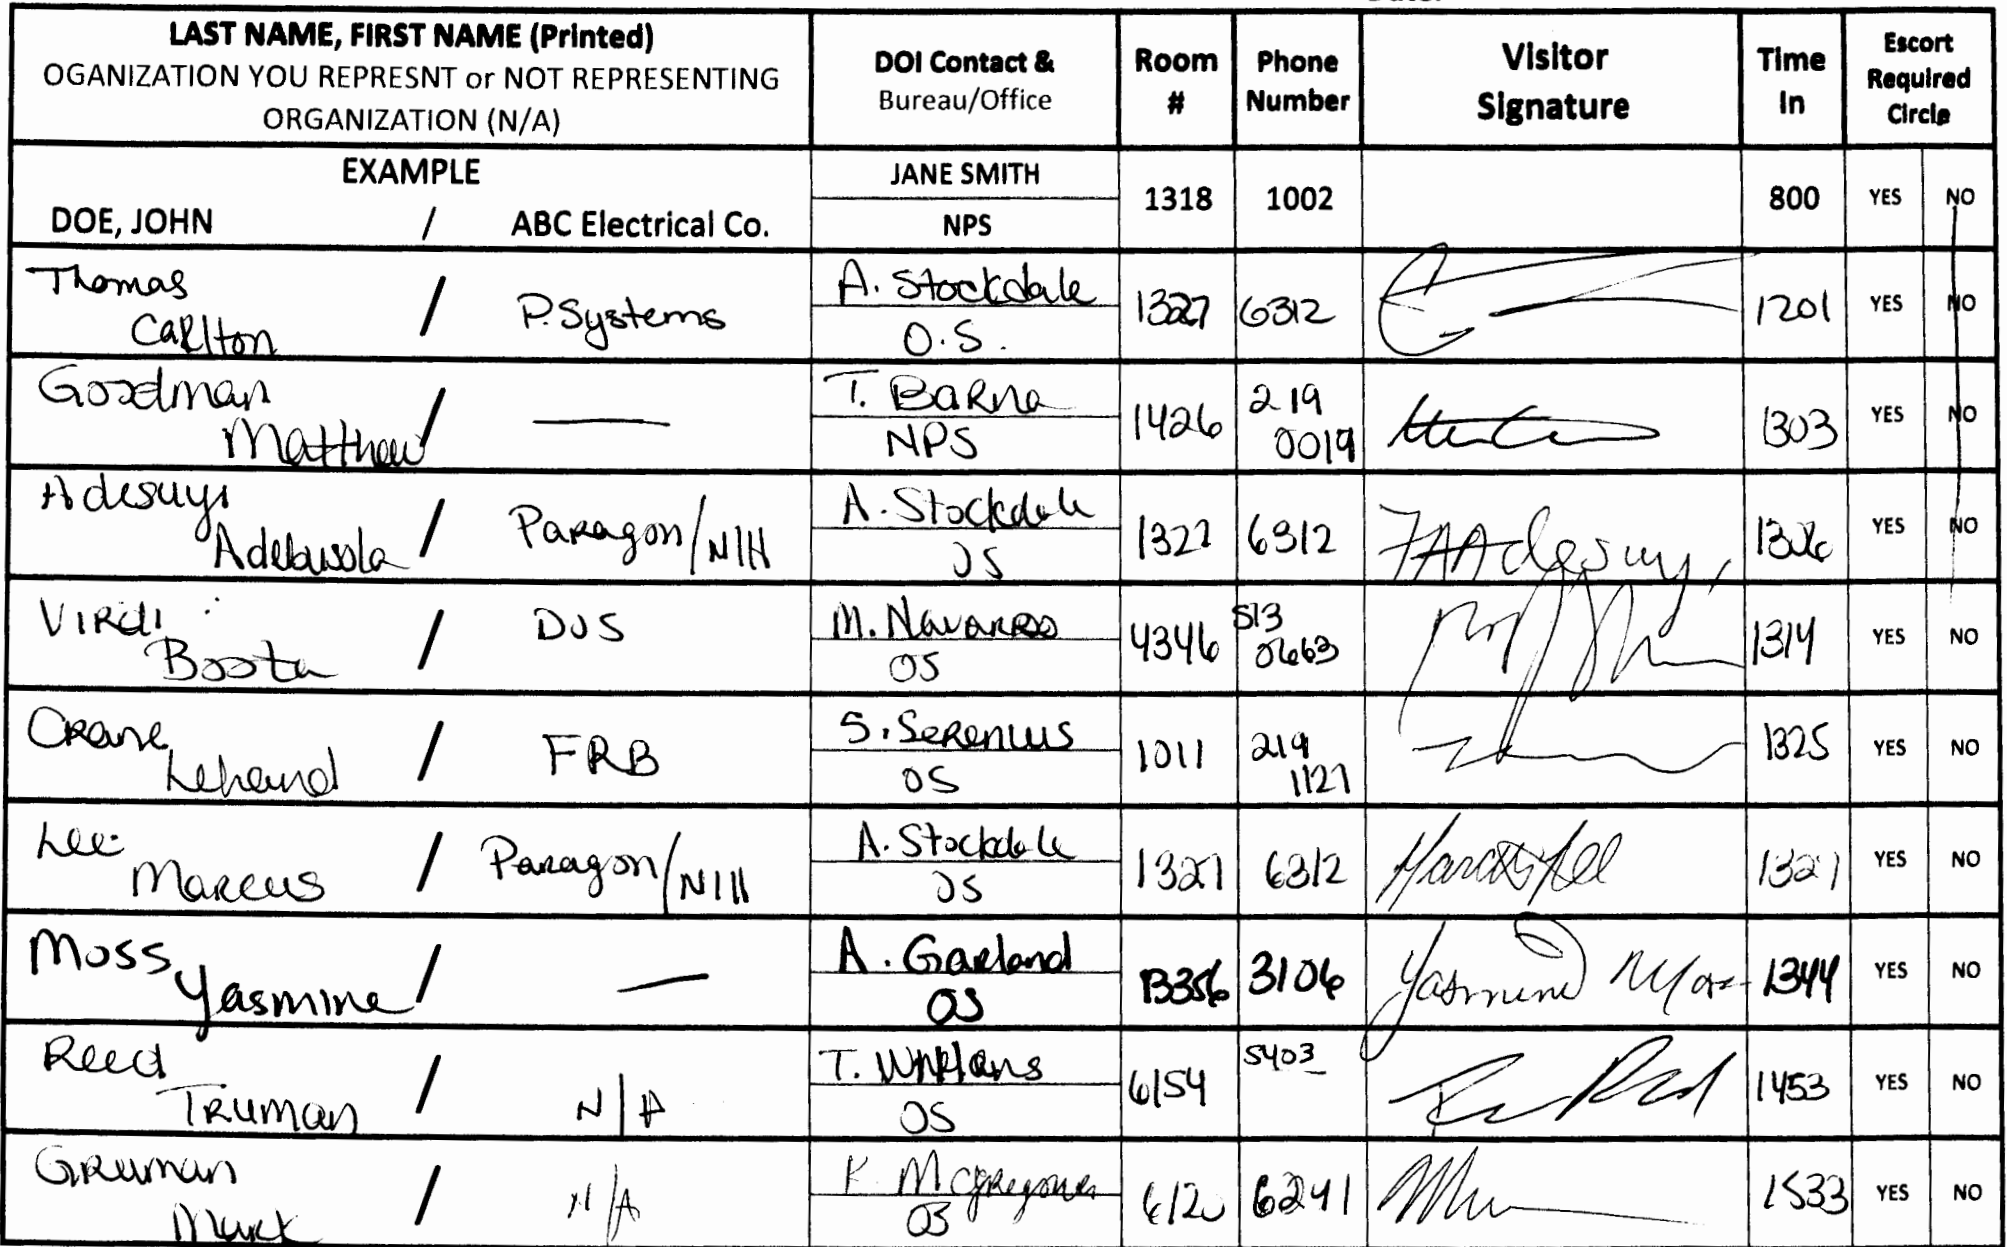 LAST NAME, FIRST NAME (Printed)
OGANIZATION YOU REPRESNT or NOT REPRESENTING
ORGANIZATION (N/A)
DOI Contact &
Bureau/Office
Room
#
Phone
Number
Visitor
Signature
Time
In
Escort
Required
Circle
EXAMPLE
DOE, JOHN / ABC Electrical Co.
JANE SMITH
NPS
1318
1002
800
YES NO
Thomas
Carlton / P. Systems
A. Stockdale
O.S.
1327
6312
1201
YES NO
Goodman
Matthew / —
T. Barna
NPS
1426
219
0019
1303
YES NO
Adesuyi
Adebusola / Paragon/NIH
A. Stockdale
OS
1327
6312
FAAdesuyi
YES NO
Virdi
Boota / DOS
M. Navarro
OS
4346
513
0663
1314
YES NO
Crane
Lehand / FRB
S. Serenius
OS
1011
219
1127
1325
YES NO
Lee
Marcus / Paragon/NIH
A. Stockdale
OS
1327
6312
Marcus Lee
1327
YES NO
Moss
Yasmine / —
A. Garland
OS
3106
Yasmine Moss
1344
YES NO
Reed
Truman / N/A
T.
OS
6154
5403
1453
YES NO
Gruman
Mark / N/A
K. McGregor
OS
6120
6241
1533
YES NO